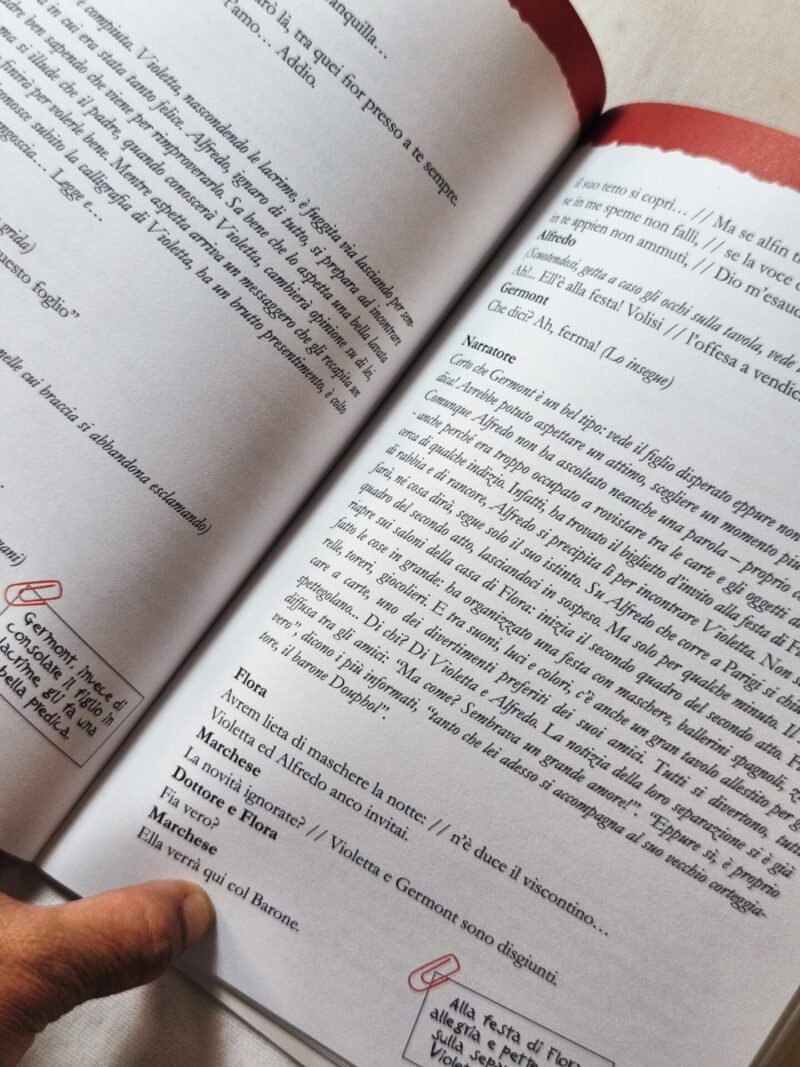 anquilla…
arò là, tra quei fior presso a te sempre.
t'amo… Addio.
è compiuta. Violetta, nascondendo le lacrime, è fuggita via lasciando per sem-
in cui era stata tanto felice. Alfredo, ignaro di tutto, si prepara ad incontrare
dre ben sapendo che viene per rimproverarlo. Sa bene che lo aspetta una bella lavata
ma si illude che il padre, quando conoscerà Violetta, cambierà opinione su di lei,
finirà per volerle bene. Mentre aspetta arriva un messaggero che gli recapita un
conosce subito la calligrafia di Violetta, ha un brutto presentimento, è colto
angoscia… Legge e…
grida)
questo foglio”
nelle cui braccia si abbandona esclamando)
mani)
Germont, invece di
consolare il figlio in
lacrime gli fa una
bella predica.
il suo tetto si coprì… // Ma se alfin
se in me speme non fallì, // se la voce
in te appien non ammutì, // Dio m'esaudì
Alfredo
(Scuotendosi, getta a caso gli occhi sulla tavola, vede
Ah!.. Ell'è alla festa! Volisi // l'offesa a vendic
Germont
Che dici? Ah, ferma! (Lo insegue)
Narratore
Certo che Germont è un bel tipo: vede il figlio disperato eppure non
dica! Avrebbe potuto aspettare un attimo, scegliere un momento più
Comunque Alfredo non ha ascoltato neanche una parola – proprio
- anche perché era troppo occupato a rovistare tra le carte e gli oggetti
cerca di qualche indizio. Infatti, ha trovato il biglietto d'invito alla festa di
di rabbia e di rancore, Alfredo si precipita lì per incontrare Violetta. Non
farà, né cosa dirà, segue solo il suo istinto. Su Alfredo che corre a Parigi si chi
quadro del secondo atto, lasciandoci in sospeso. Ma solo per qualche minuto. Il
riapre sui saloni della casa di Flora: inizia il secondo quadro del secondo atto.
fatto le cose in grande: ha organizzato una festa con maschere, ballerini spagnoli,
relle, toreri, giocolieri. E tra suoni, luci e colori, c'è anche un gran tavolo allestito per
care a carte, uno dei divertimenti preferiti dei suoi amici. Tutti si divertono, tutti
spettegolano… Di chi? Di Violetta e Alfredo. La notizia della loro separazione si è già
diffusa tra gli amici: “Ma come? Sembrava un grande amore!”. “Eppure sì, è proprio
vero”, dicono i più informati, “tanto che lei adesso si accompagna al suo vecchio corteggia-
tore, il barone Douphol”.
Flora
Avrem lieta di maschere la notte: // n'è duce il viscontino…
Violetta ed Alfredo anco invitai.
Marchese
La novità ignorate? // Violetta e Germont sono disgiunti.
Dottore e Flora
Fia vero?
Marchese
Ella verrà qui col Barone.
Alla festa di Flora
allegria e pette
sulla sepa
Viole